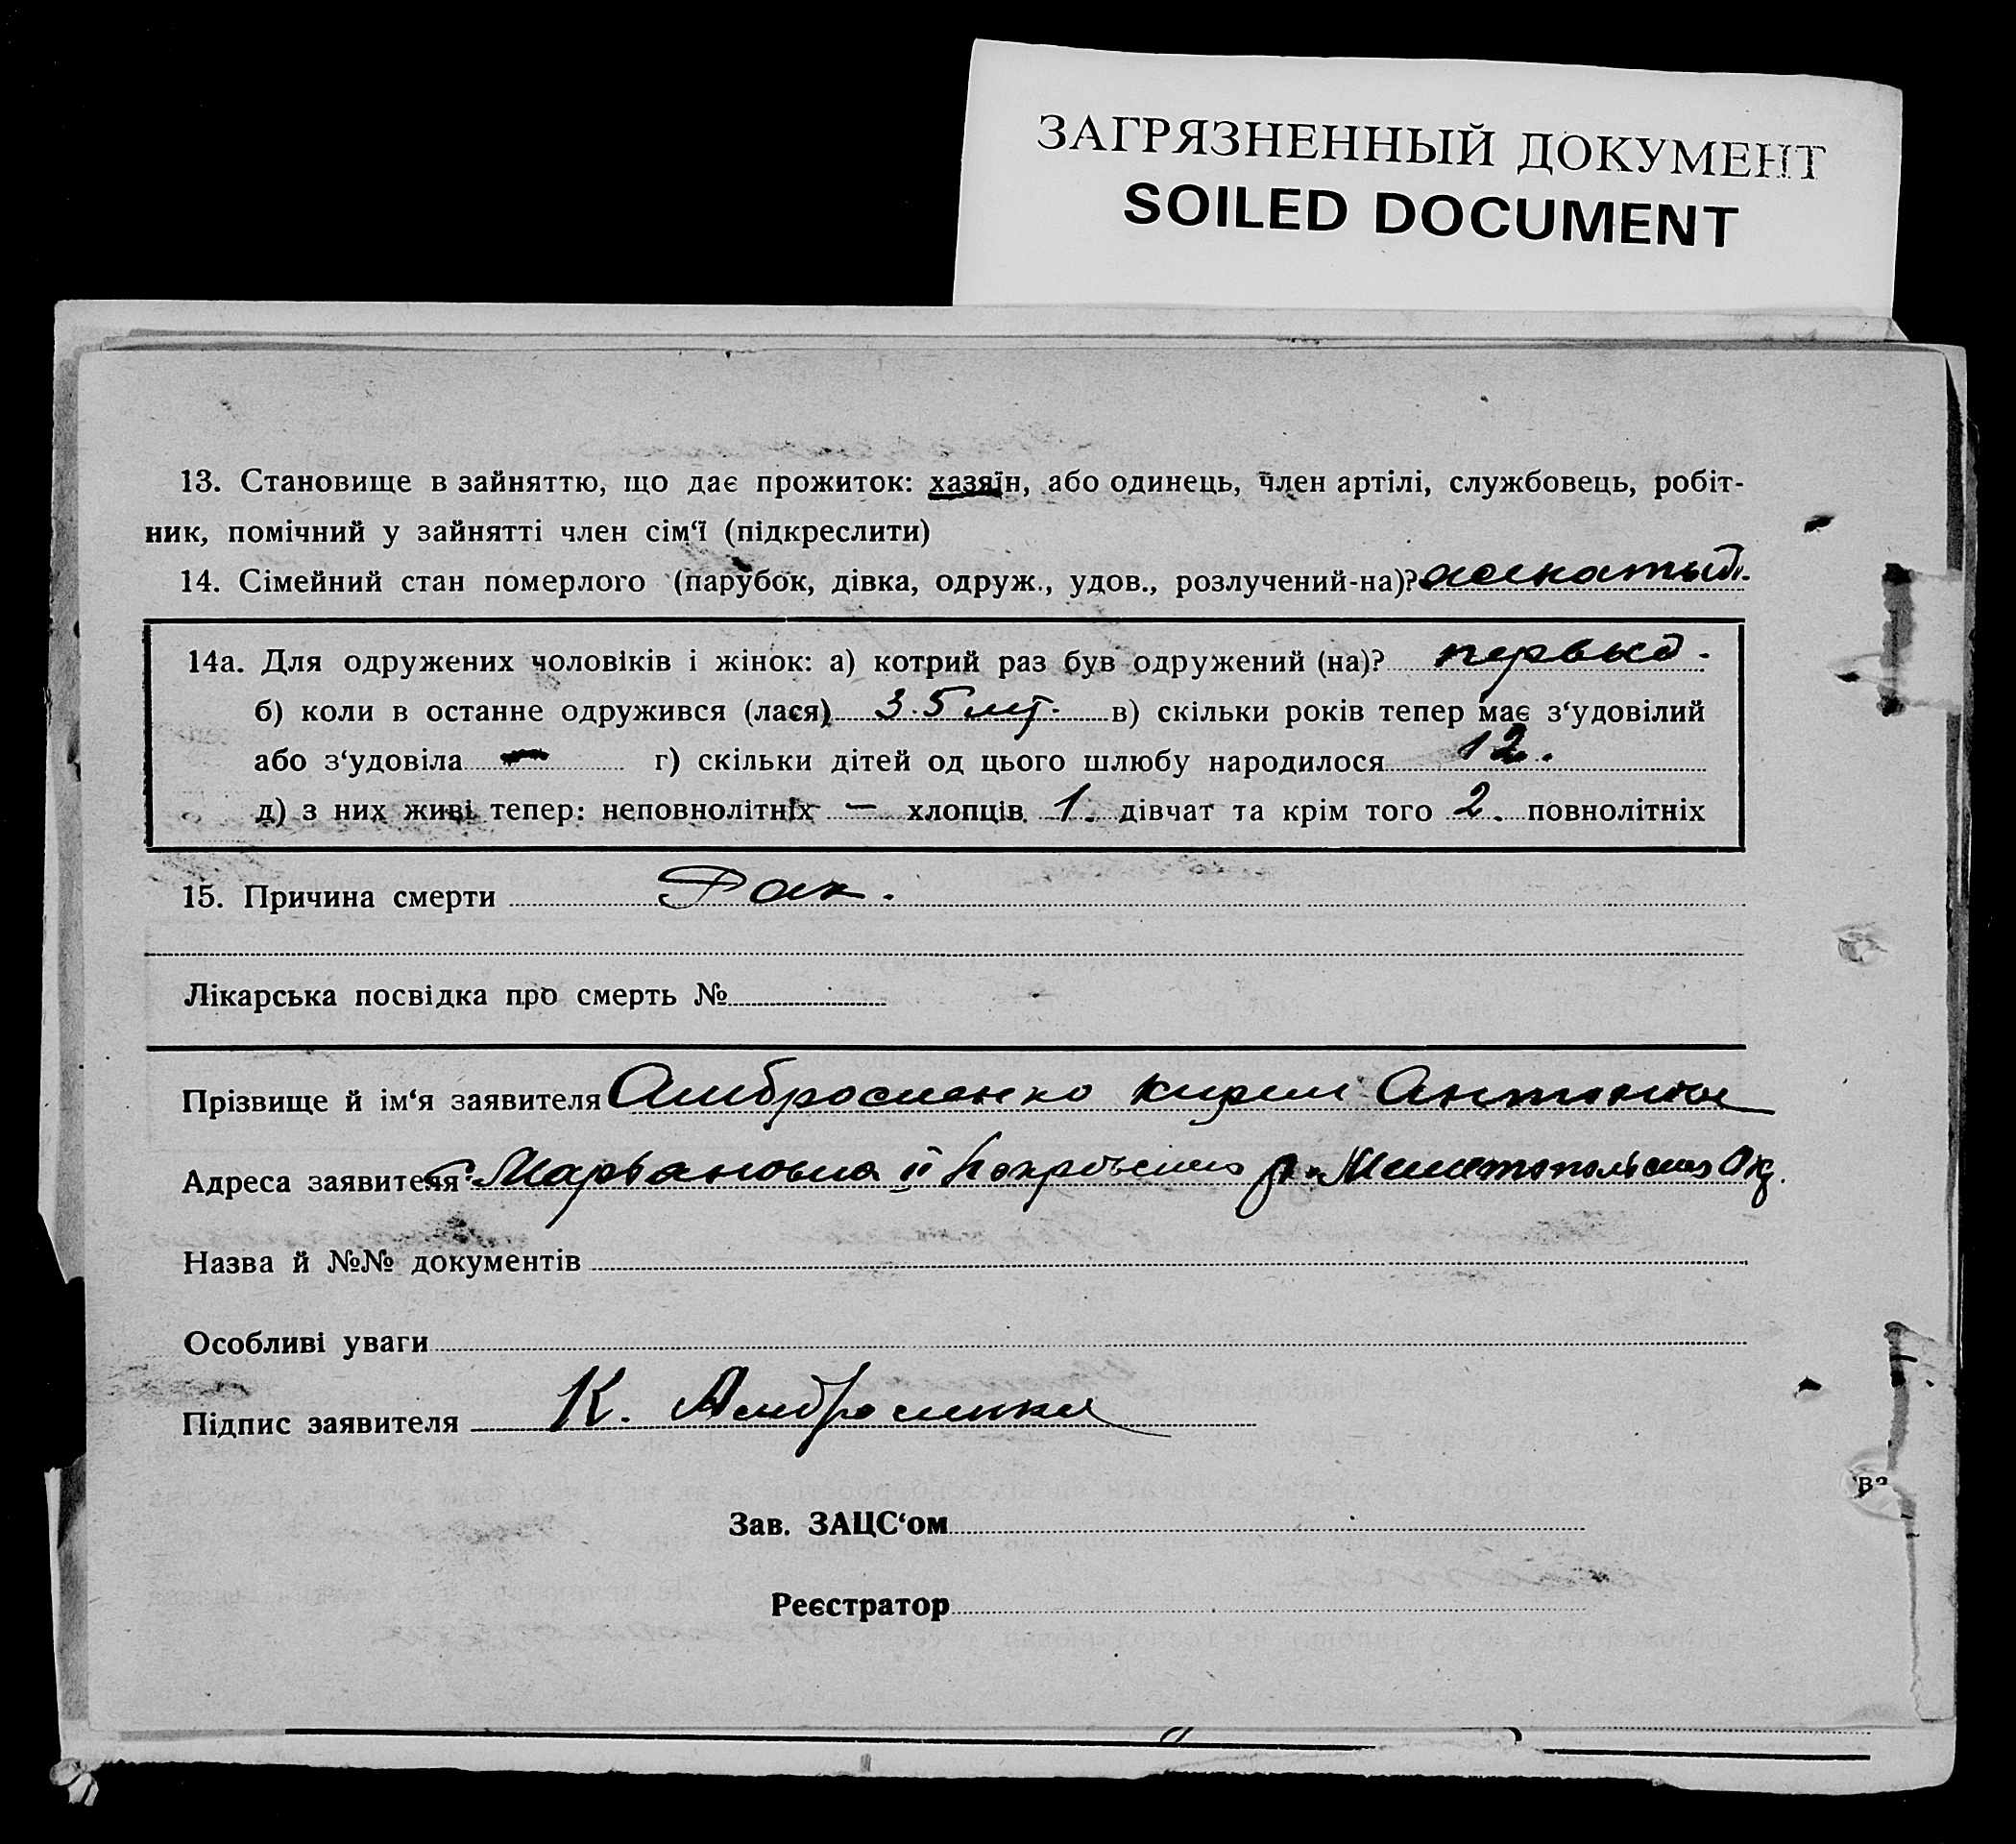 ЗАГРЯЗНЕННЫЙ ДОКУМЕНТ
SOILED DOCUMENT
13. Становище в зайняттю, що дає прожиток: хазяїн, або одинець, член артілі, службовець, робіт-
ник, помічний у зайнятті член сім‘ї (підкреслити)
14. Сімейний стан померлого (парубок, дівка, одруж., удов., розлучений-на)? женатый.
14а. Для одружених чоловіків і жінок: а) котрий раз був одружений (на)? первый.
б) коли в останне одружився (лася) 35 лет. в) скільки років тепер має з‘удовілий
або з‘удовіла — г) скільки дітей од цього шлюбу народилося 12.
д) з них живі тепер: неповнолітніх — хлопців 1. дівчат та крім того 2. повнолітніх
15. Причина смерти Рак.
Лікарська посвідка про смерть №
Прізвище й ім‘я заявителя Амбросменко Кирил
Адреса заявителя с. II Покровского р. Мелитопольского Окр.
Назва й №№ документів
Особливі уваги
Підпис заявителя К.
Зав. ЗАЦС‘ом
Реєстратор